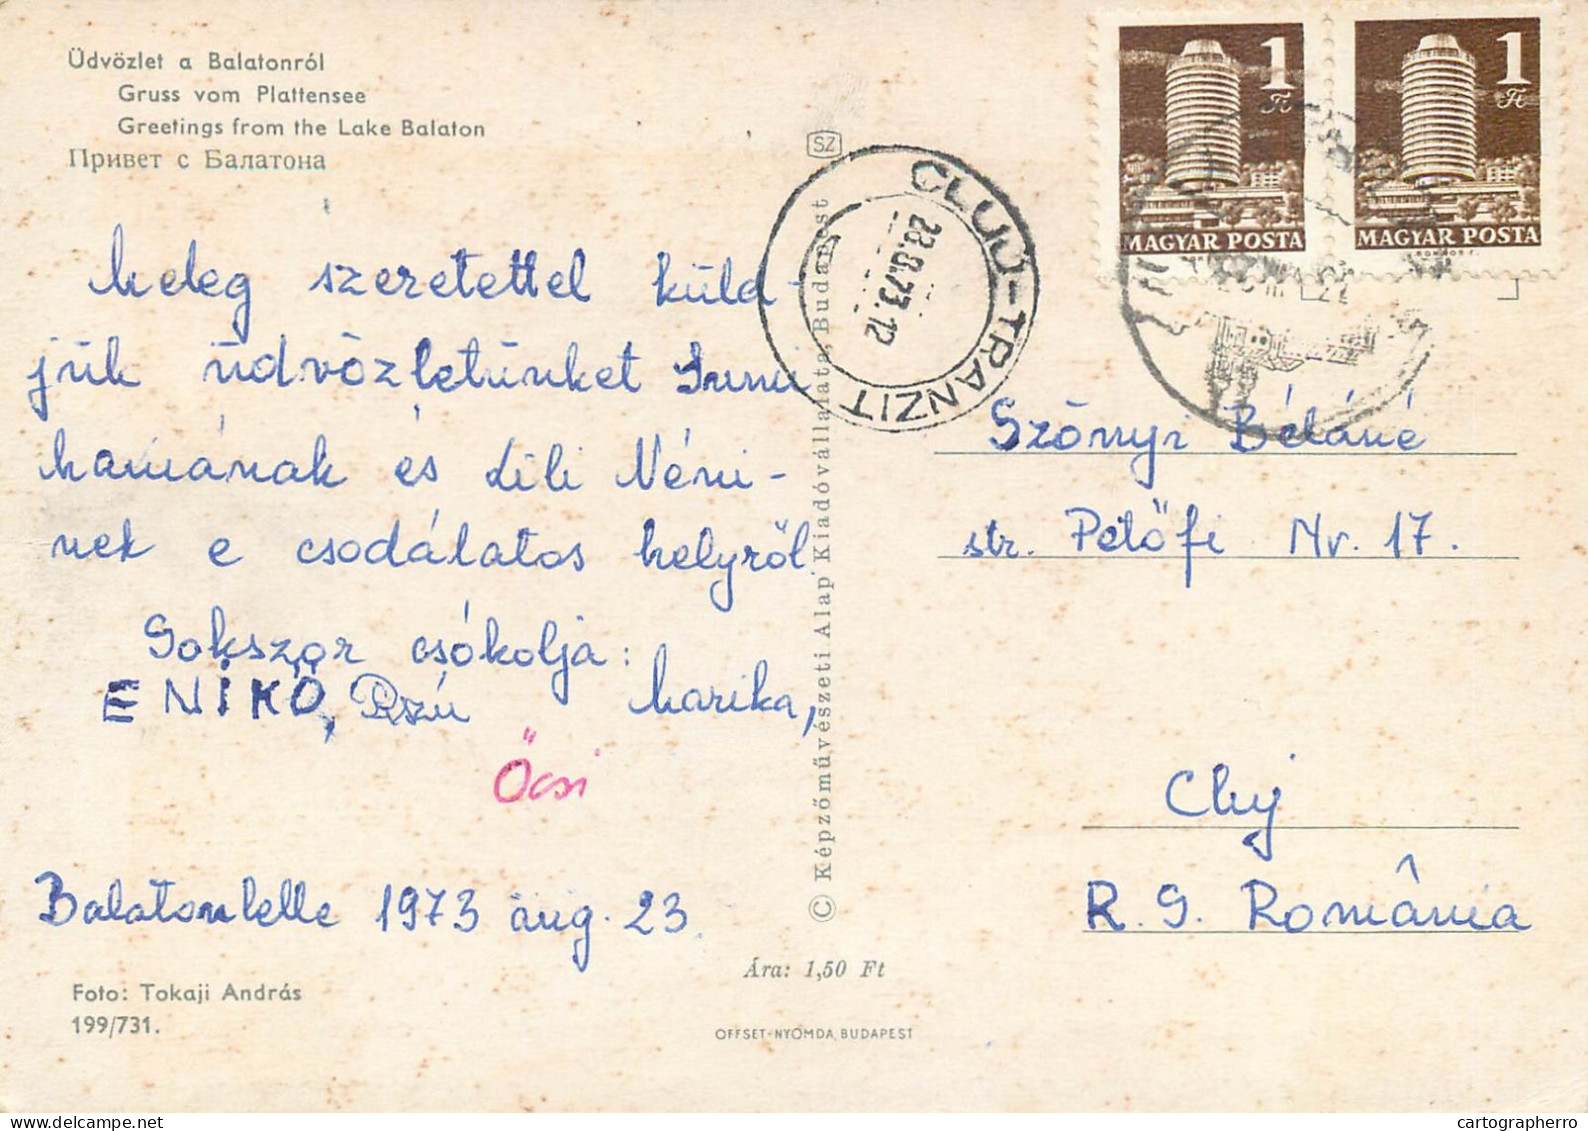 Üdvözlet a Balatonról
Gruss vom Plattensee
Greetings from the Lake Balaton
Привет с Балатона
Meleg szeretettel küld-
jük üdvözletünket
mamának és Lili Néni-
nek e csodálatos helyről.
Sokszor csókolja:
ENIKŐ, Marika,
Öcsi
Balatonlelle 1973 aug. 23.
Foto: Tokaji András
199/731.
SZ
© Képzőművészeti Alap Kiadóvállalata, Budapest
Ára: 1,50 Ft
OFFSET-NYOMDA, BUDAPEST
CLUJ-TRANZIT
28.8.73.12
1 Ft
MAGYAR POSTA
1 Ft
MAGYAR POSTA
Szőnyi Béláné
str. Petőfi Nr. 17.
Cluj
R. S. România
cartographerro